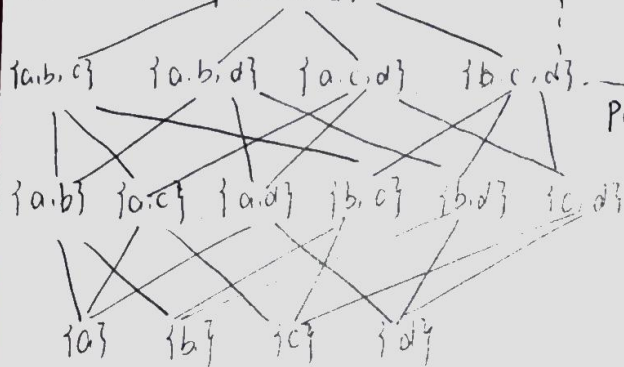 {a,b,c} {a.b,d} {a.c,d} {b.c,d}
{a,b} {a,c} {a,d} {b,c} {b,d} {c,d}
{a} {b} {c} {d}